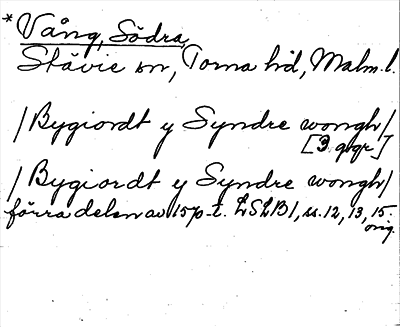 * Vång, Södra
Stävie sn, Torna hd, Malm. l.
/Bygiordt y Syndre wongh/
[3 ggr]
/Bygiordt y Syndre wongh/
förra delen av 1570-t. LSLB1, ss. 12, 13, 15.
orig.